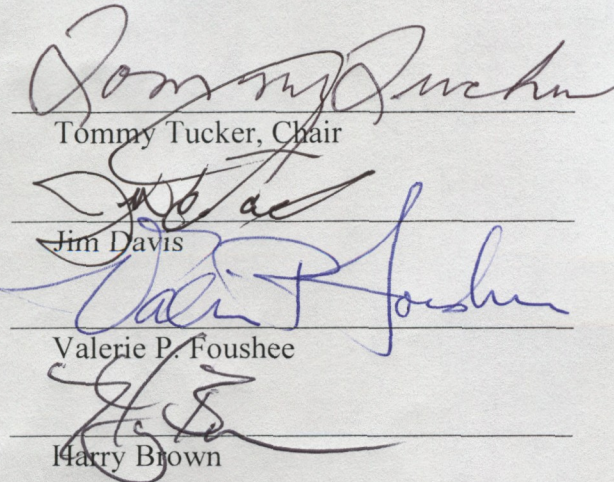 Tommy Tucker
Tommy Tucker, Chair
Jim Davis
Valerie P. Foushee
Valerie P. Foushee
Harry Brown